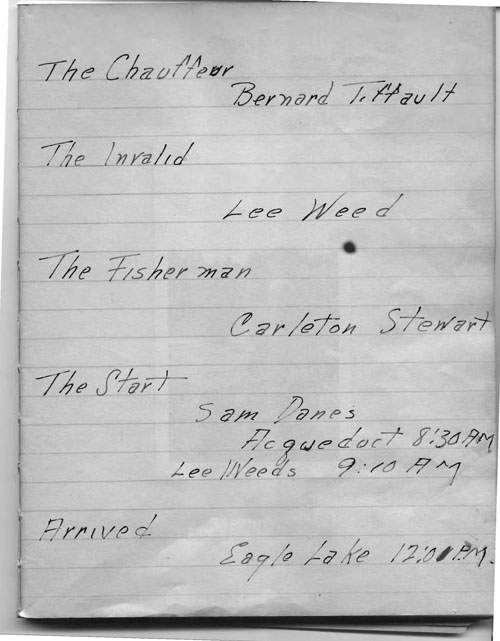 The Chauffeur
Bernard Tiffault
The Invalid
Lee Weed
The Fisherman
Carleton Stewart
The Start
Sam Danes
Acqueduct 8:30 AM
Lee Weeds 9:10 AM
Arrived
Eagle Lake 12:01 P.M.